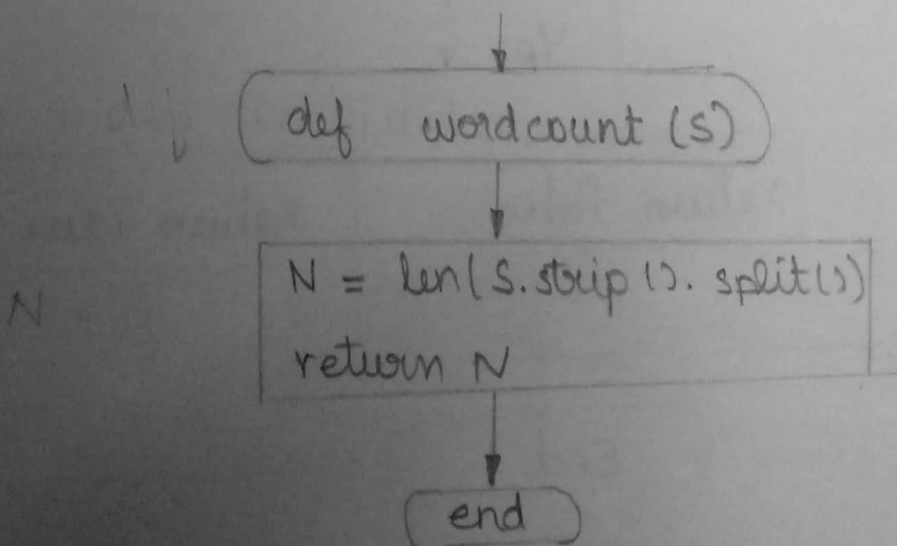 def wordcount (s)
N = len(s.strip(). split())
return N
N
end